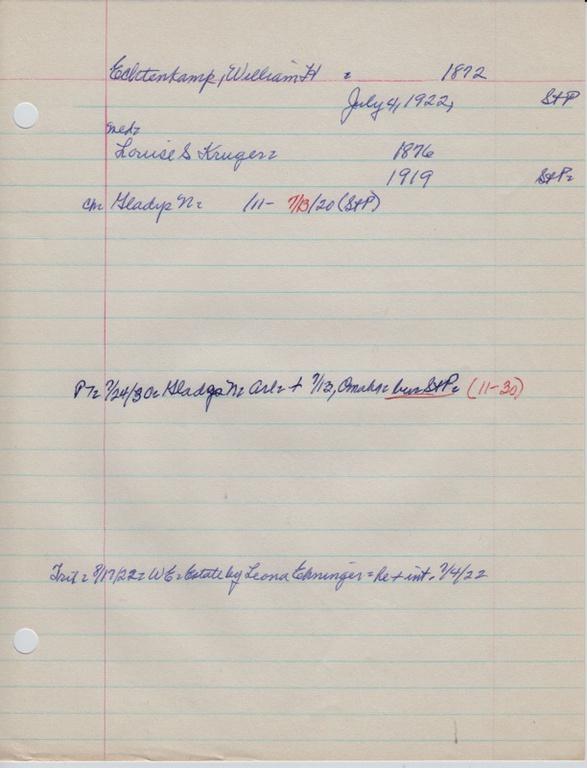 Echtenkamp, William H = 1872
July 4, 1922, St P
med=
Louise S Kruger= 1876
1919 St P=
cm= Gladys N= /11- 7/13/20 (St P)
PT= 7/24/30= Gladys N= Arl= + 7/13, Omaha= bur St P= (11-30)
Trib= 8/17/22= WE= Estate by Leona Ehninger= he + int. 7/4/22